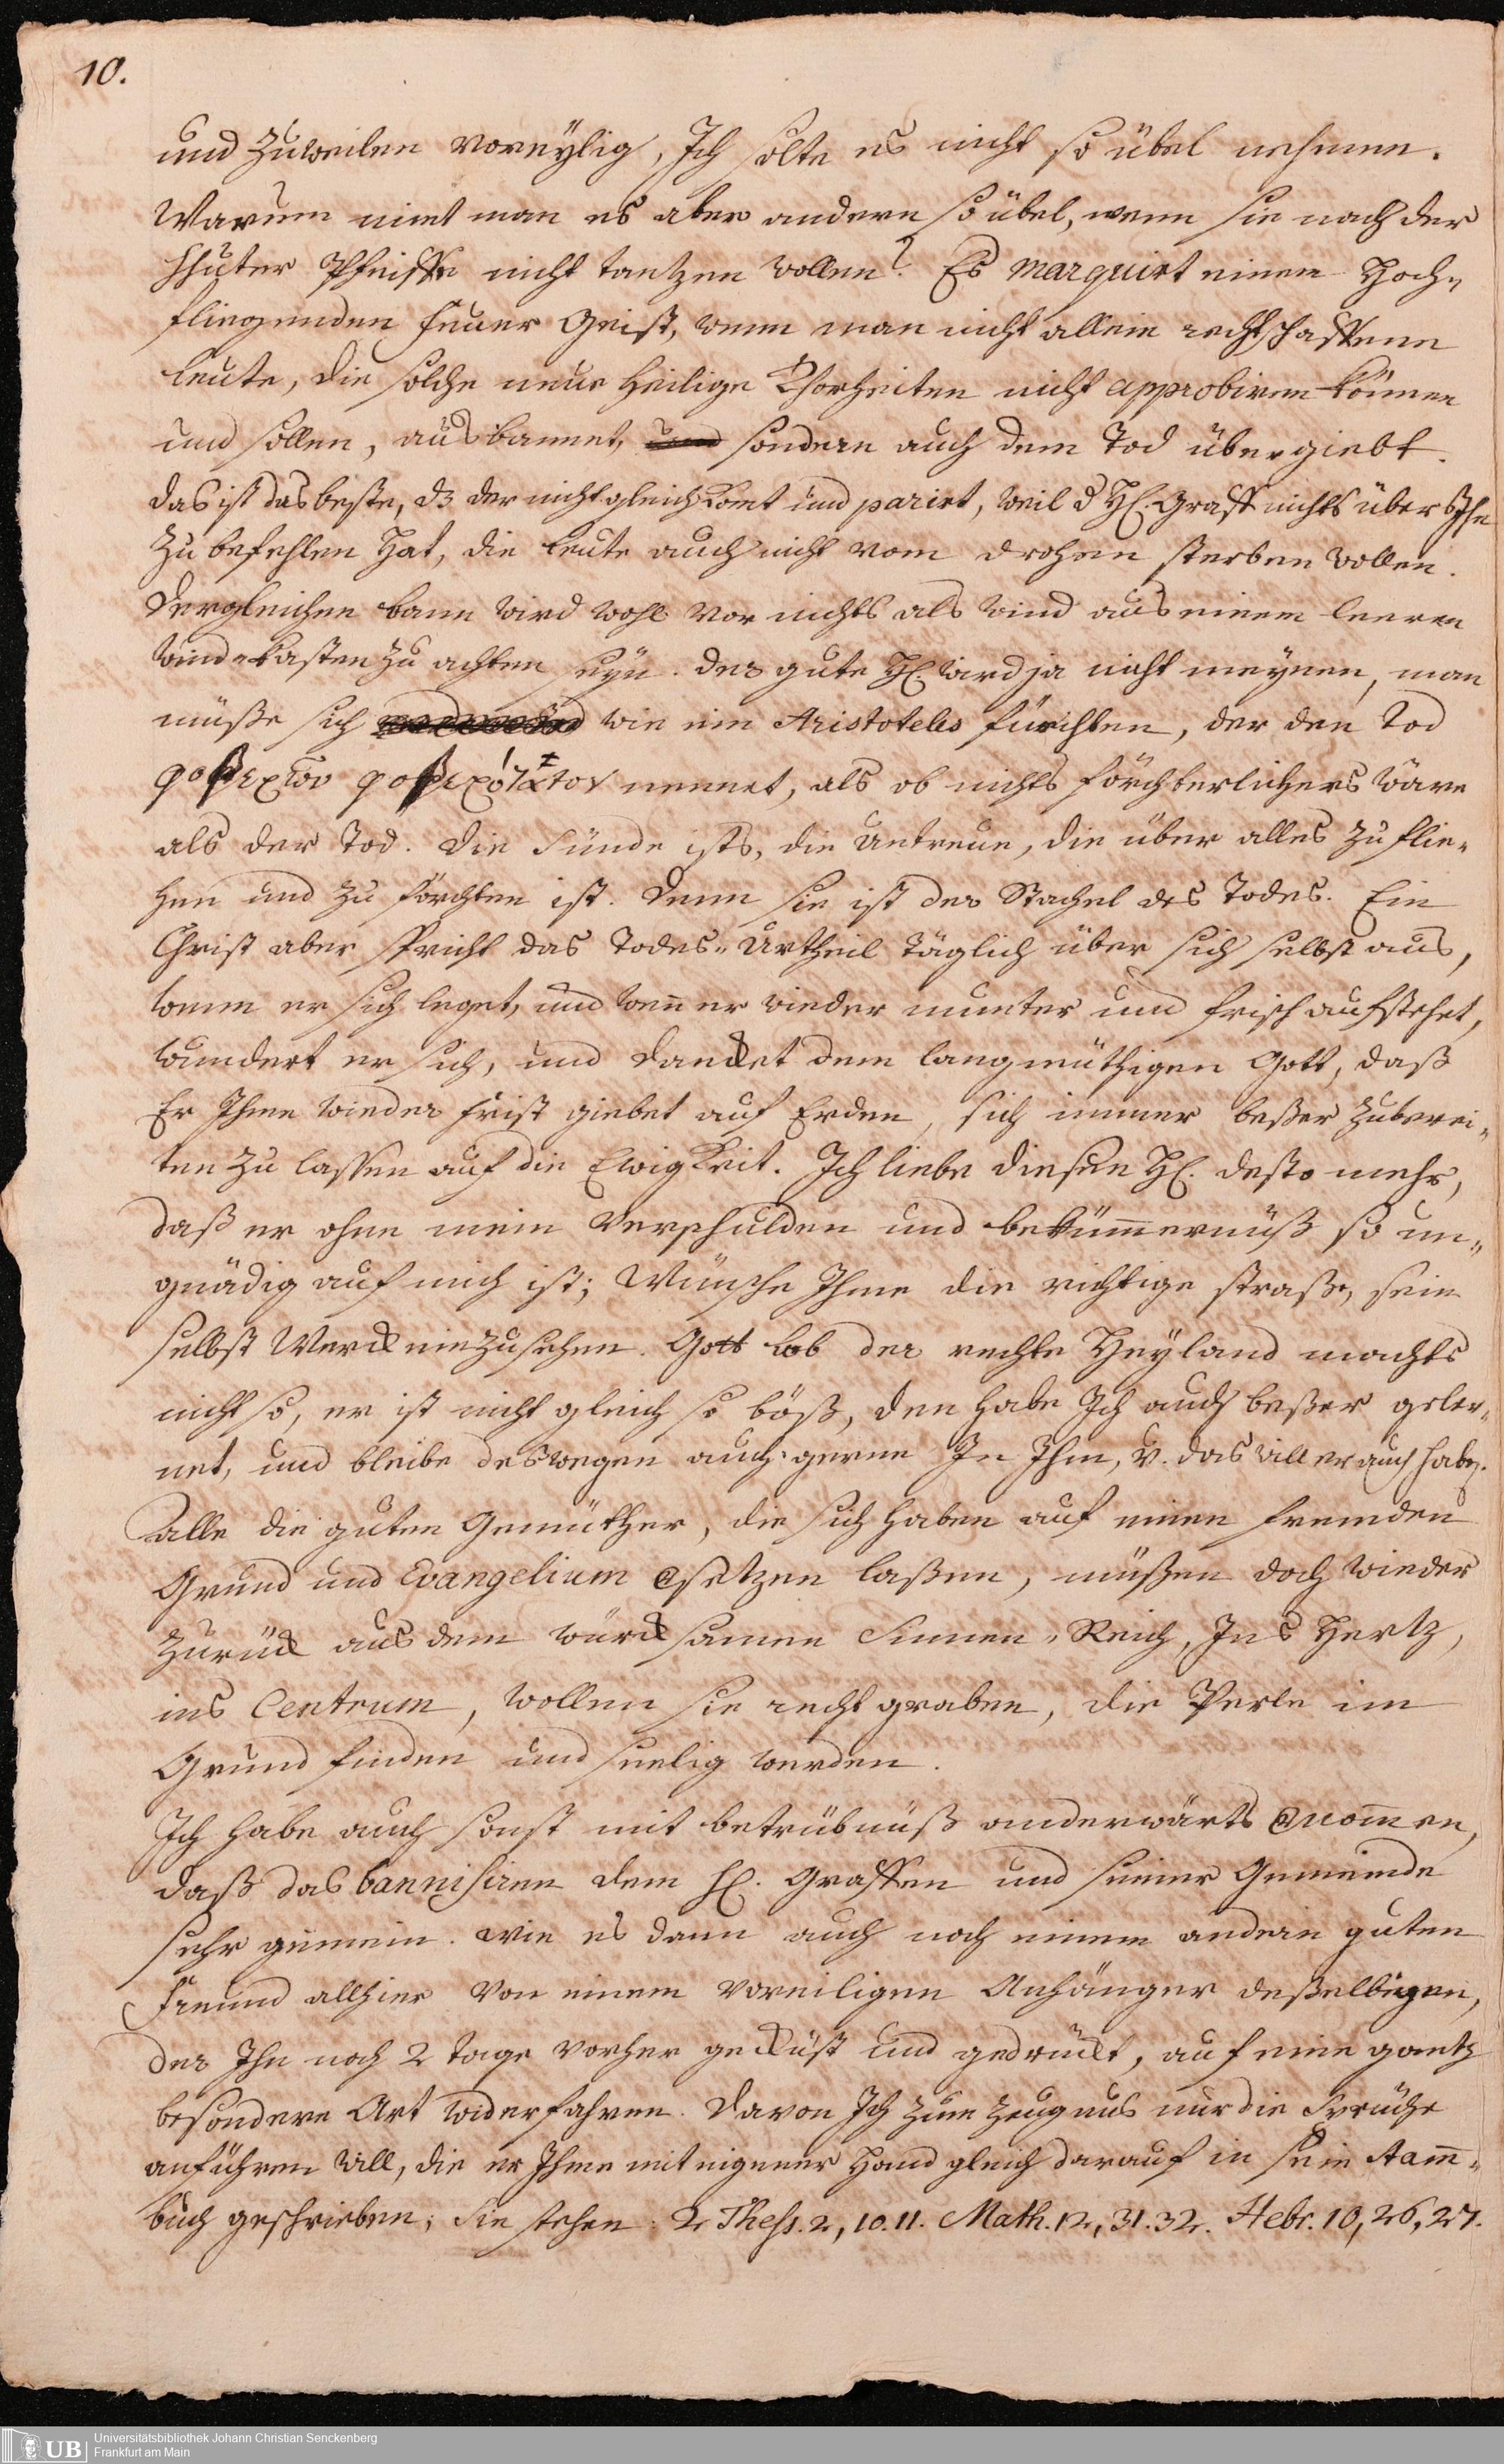 10.
und zuweilen voreÿlig, Ich solte es nicht so übel nehmen.
Warum nimt man es aber andern so übel, wenn sie nach der
Hhuter Pfeiffe nicht tantzen wollen? Es marquirt einen Hoch-
fliegenden feuer Geist, wenn man nicht allein rechtschaffene
leute, die solche neue heilige Thorheiten nicht approbiren können
und sollen, ausbannet, sondern auch dem Tod übergiebt.
das ist das beste, dz der nicht gleich komt und parirt, weil d H. Graff nichts über Ihn
zu befehlen hat, die leute auch nicht vom drohen sterben wollen.
Dergleichen bann wird wohl vor nichts als wind aus einem leeren
wind-kasten zu achten seyn. der gute H. wird ja nicht meynen, man
müsse sich wie ein Aristoteles fürchten, der den Tod
nennet, als ob nichts förchterlichers wäre
als der Tod. die Sünde ists, die Untreue, die über alles zu flie-
hen und zu förchten ist. denn sie ist der Stachel des Todes. Ein
Christ aber spricht das Todes-Urtheil täglich über sich selbst aus,
wenn er sich leget, und wenn er wieder munter und frisch aufstehet,
wundert er sich, und dancket dem langmüthigen Gott, daß
Er Ihme wieder frist giebet auf Erden, sich immer beßer zuberei-
ten zu lassen auf die Ewigkeit. Ich liebe diesen H. desto mehr,
daß er ohne mein verschulden und bekümmernüß so un-
gnädig auf mich ist; Wünsche Ihme die richtige straße, sein
selbst Werck einzusehen. Gott Lob der rechte Heyland machts
nicht so, er ist nicht gleich so böß, den habe Ich auch beßer geler-
net, und bleibe deswegen auch gerne In Ihm, u. das will er auch haben.
alle die guten Gemüther, die sich haben auf einen fremden
Grund und Evangelium setzen laßen, müßen doch wieder
zurück aus dem würcksamen Sinnen-Reich, Ins Hertz,
ins Centrum, wollen sie recht graben, die Perle im
Grund finden und seelig werden.
Ich habe auch sonst mit betrübnüß anderwärts vernommen,
daß das bannisiren dem H. Graffen und seiner Gemeinde
sehr gemein. wie es dann auch noch einem andern guten
Freund allhier von einem voreiligen Anhänger deßelbigen,
der Ihn noch 2 Tage vorher geküst und gedrückt, auf eine gantz
besondere Art widerfahren. davon Ich zum Zeugnus nur die Sprüche
anführen will, die er Ihme mit eigener Hand gleich darauf in sein Stamm-
buch geschrieben; sie stehen: 2 Thess. 2, 10.11. Math. 12, 31.32. Hebr. 10, 26, 27.
UB
Universitätsbibliothek Johann Christian Senckenberg
Frankfurt am Main